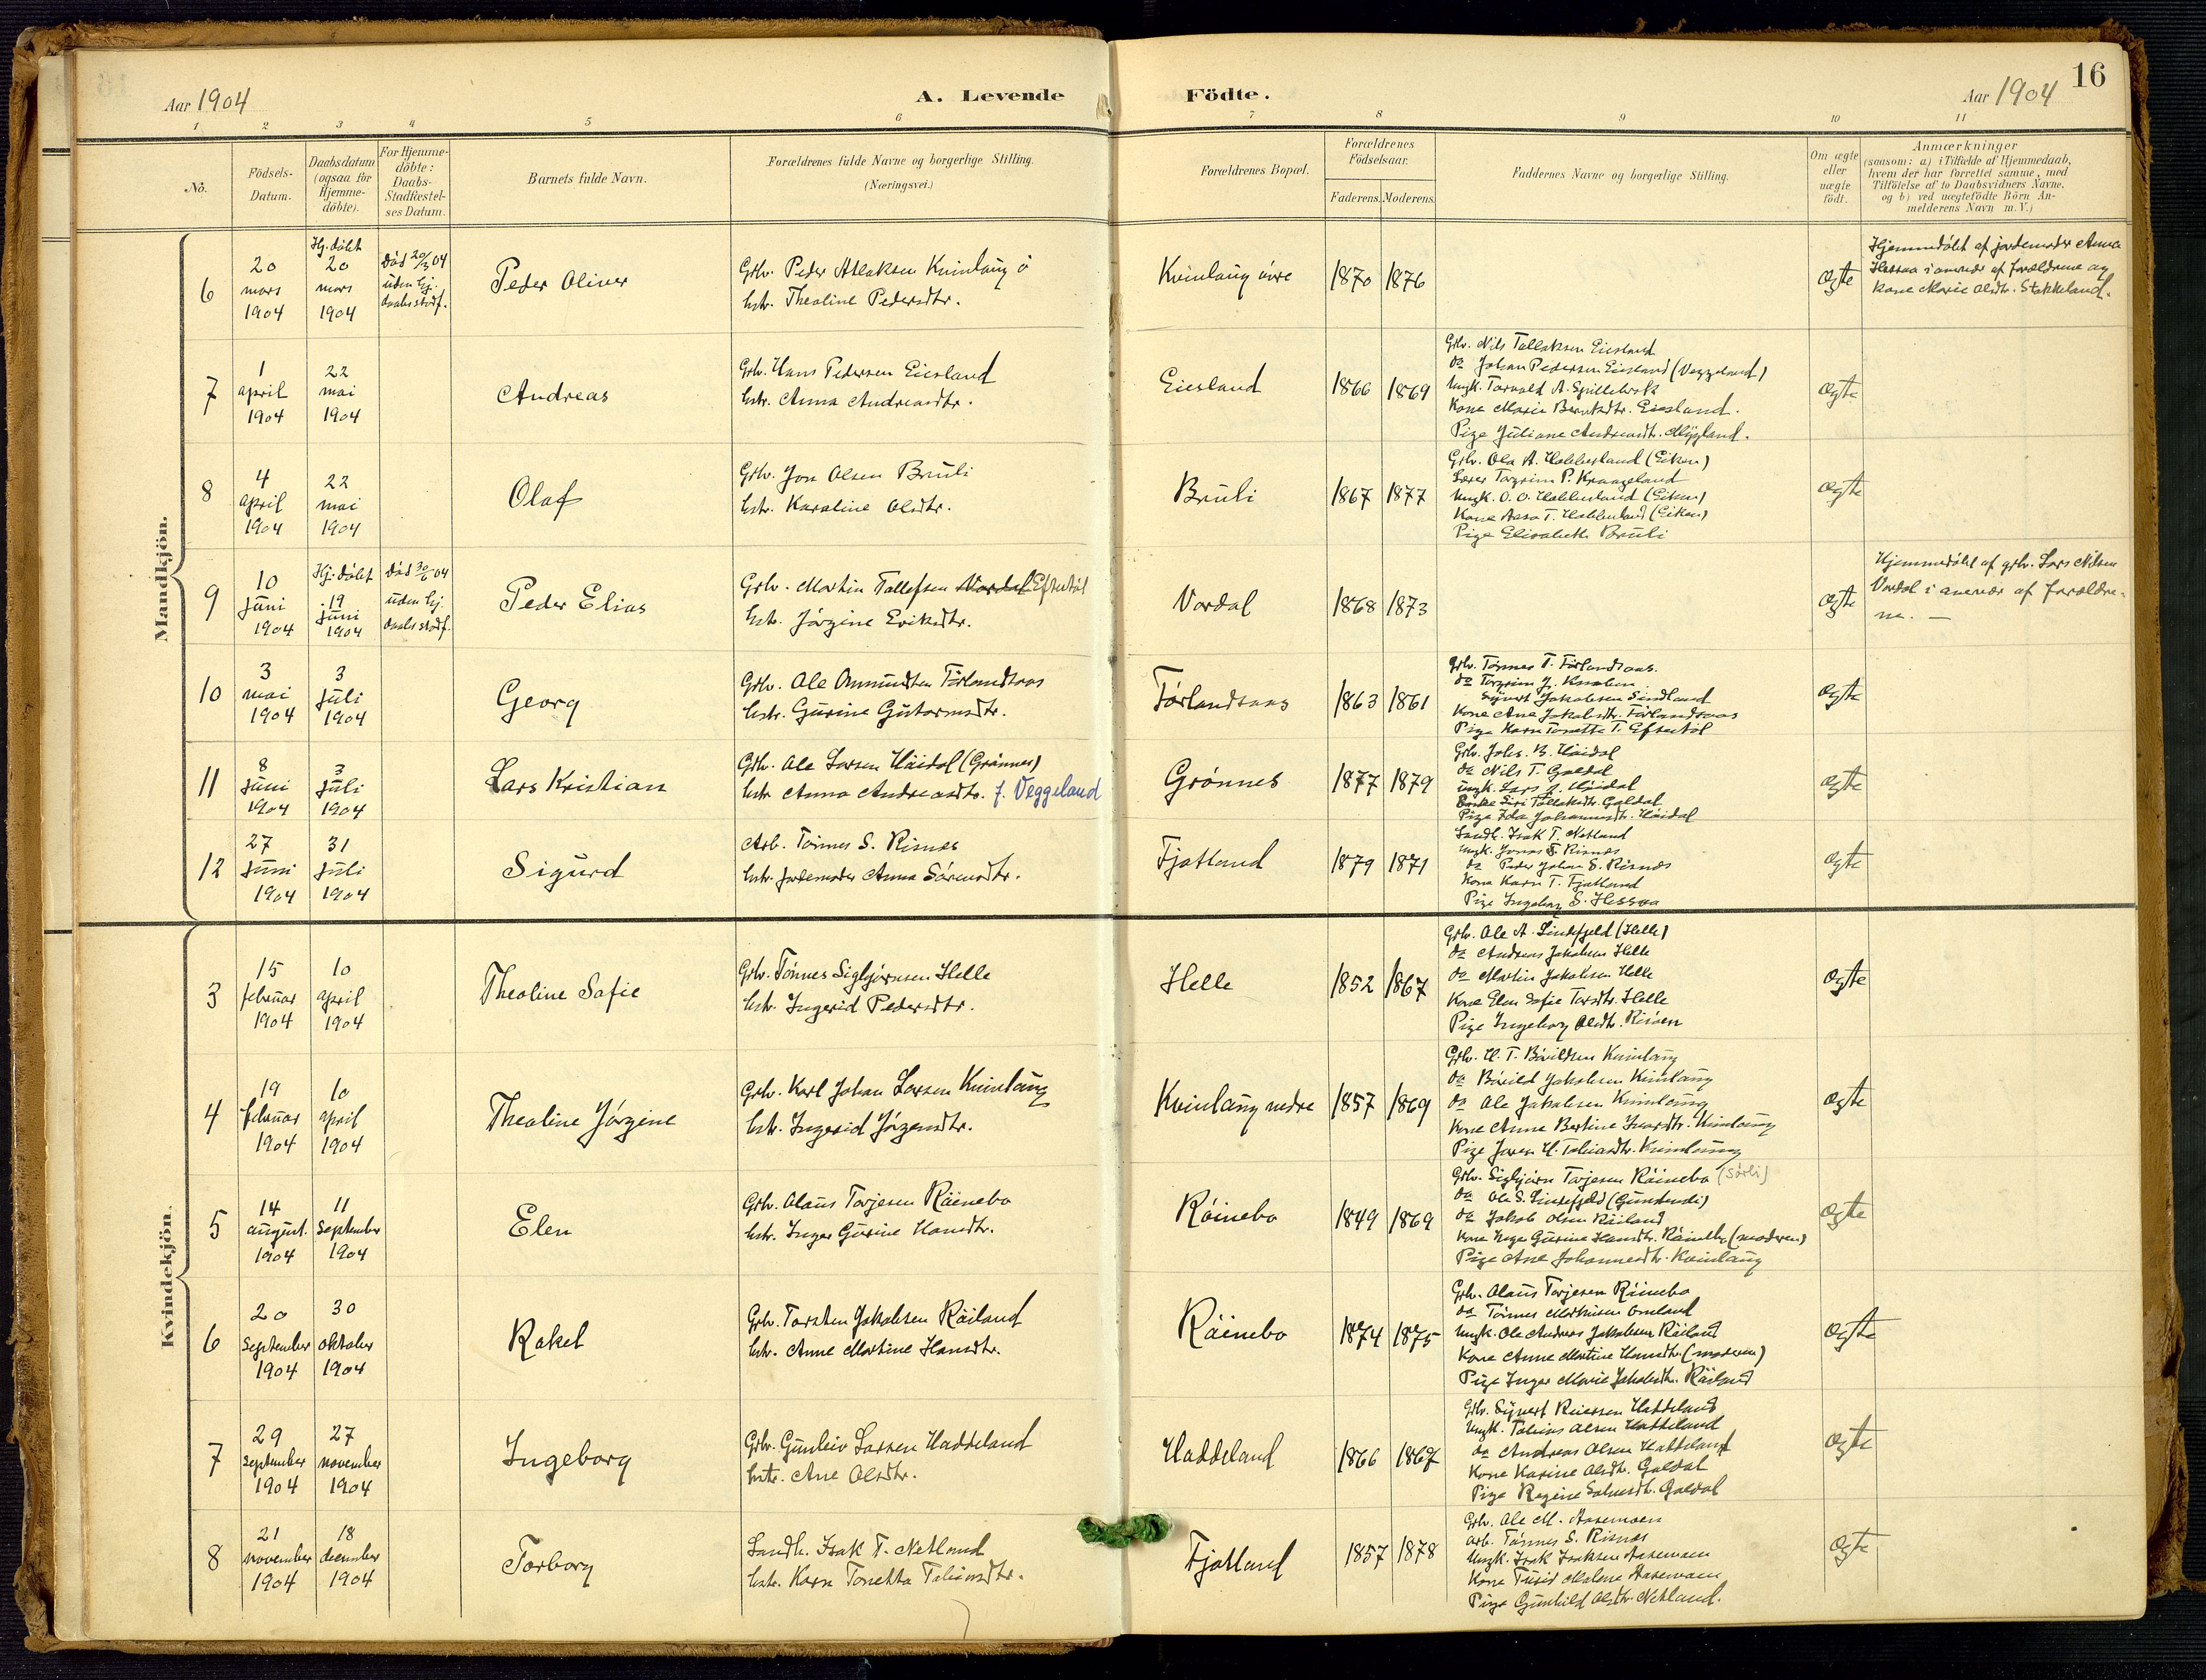 16
Aar 1904
A. Levende
Födte.
Aar 1904
1 2 3 4 5 6 7 8 9 10 11
No.
Födsels-
Datum.
Daabsdatum
(ogsaa for
Hjemme-
döbte).
For Hjemme-
döbte:
Daabs-
Stadfæstel-
ses Datum.
Barnets fulde Navn.
Forældrenes fulde Navne og borgerlige Stilling.
(Næringsvei.)
Forældrenes Bopæl.
Forældrenes
Födselsaar.
Faderens. Moderens.
Faddernes Navne og borgerlige Stilling.
Om ægte
eller
uægte
födt.
Anmærkninger
(saasom: a) i Tilfælde af Hjemmedaab,
hvem der har forrettet samme, med
Tilföielse af to Daabsvidners Navne.
og b) ved uægtefödte Börn An-
melderens Navn m. V.)
Mandkjön.
6
20
mars
1904
Hj. døbt
20
mars
1904
Død 20/3 04
uden hj.
daabsstadf.
Peder Oliver
Grbr. Peder Atlaksen Kvinlaug ø
hstr. Theoline Pedersdtr.
Kvinlaug øvre
1870 1876
ægte
Hjemmedøbt af jordemoder Anna
Hessaa i nærvær af forældrene og
kone Marie Olsdtr. Stakkeland.
7
1
april
1904
22
mai
1904
Andreas
Grbr. Hans Pedersen Eiesland
hstr. Anna Andreasdtr.
Eiesland
1866 1869
Grbr. Nils Tallaksen Eiesland
do Johan Pedersen Eiesland (Veggeland)
Ungk. Torvald A. Spilleboek
Kone Marie Berntsdtr. Eiesland.
Pige Juliane Andreasdtr. Mygland.
ægte
8
4
april
1904
22
mai
1904
Olaf
Grbr. Jon Olsen Bruli
hstr. Karoline Olsdtr.
Bruli
1867 1877
Grbr. Ola A. Hobbesland (Eiken)
Lærer Torgrim P. Kraageland
Ungk. O. O. Hobbesland (Eiken)
Kone Aasa T. Hobbesland (Eiken)
Pige Elisabeth Bruli
ægte
9
10
juni
1904
Hj. døbt
19
juni
1904
Død 30/6 04
uden hj.
daabsstadf.
Peder Elias
Grbr. Martin Tollefsen Vordal Eftestøl
hstr. Jørgine Eriksdtr.
Vordal
1868 1873
ægte
Hjemmedøbt af grbr. Lars Nilsen
Vordal i nærvær af forældre-
ne. —
10
3
mai
1904
3
juli
1904
Georg
Grbr. Ole Ommundsen Førlandsaas
hstr. Gurine Gutormsdtr.
Førlandsaas
1863 1861
Grbr. Tønnes T. Førlandsaas.
do Torgrim J. Knaben
Sigvert Jakobsen Sindland
Kone Ane Jakobsdtr. Førlandsaas
Pige Karn Tonette T. Eftestøl
ægte
11
8
juni
1904
3
juli
1904
Lars Kristian
Grbr. Ole Larsen Høidal (Grønnes)
hstr. Anna Andreasdtr. f. Veggeland
Grønnes
1877 1879
Grbr. Johs. B. Høidal
do Nils T. Galdal
ungk. Lars J. Høidal
Enke Siri Tallaksdtr. Galdal
Pige Ida Johannesdtr. Høidal
ægte
12
27
juni
1904
31
juli
1904
Sigurd
Arb. Tønnes S. Risnes
hstr. jordemoder Anna Sørensdtr.
Fjotland
1879 1871
Landh. Isak T. Netland
Ungk. Jonas S. Risnes
do Peder Johan S. Risnes
Kone Karn T. Fjotland
Pige Ingeborg S. Hessaa
ægte
Kvindekjön.
3
15
februar
1904
10
april
1904
Theoline Sofie
Grbr. Tønnes Sigbjørnsen Helle
hstr. Ingerid Pedersdtr.
Helle
1852 1867
Grbr. Ole A. Lindefjeld (Helle)
do Andreas Jakobsen Helle
do Martin Jakobsen Helle
Kone Elen Sofie Torsdtr. Helle
Pige Ingeborg Olsdtr. Risøen
ægte
4
19
februar
1904
10
april
1904
Theoline Jørgine
Grbr. Karl Johan Larsen Kvinlaug
hstr. Ingerid Jørgensdtr.
Kvinlaug nedre
1857 1869
Grbr. H. T. Bøvildsen Kvinlaug
do Bøvild Jakobsen Kvinlaug
do Ole Jakobsen Kvinlaug
Kone Anne Bertine Ivarsdtr. Kvinlaug
Pige H. Tobiasdtr. Kvinlaug
ægte
5
14
august.
1904
11
September
1904
Elen
Grbr. Olaus Torjesen Røinebo
hstr. Inger Gurine Hansdtr.
Røinebo
1849 1869
Grbr. Sigbjørn Torjesen Røinebo (Sørli)
do Ole S. Lindefjeld (Gunstendi)
do Jakob Olsen Røiland
Kone Inger Gurine Hansdtr. Røinebo (moderen)
Pige Ane Johannesdtr. Kvinlaug
ægte
6
20
September
1904
30
oktober
1904
Rakel
Grbr. Torsten Jakobsen Røiland
hstr. Anne Martine Hansdtr.
Røinebo
1874 1875
Grbr. Olaus Torjesen Røinebo
do Tønnes Mathisen Omland
Ungk. Ole Andreas Jakobsen Røiland
Kone Anne Martine Hansdtr. (moderen)
Pige Inger Marie Jakobsdtr. Røiland
ægte
7
29
September
1904
27
november
1904
Ingeborg
Grbr. Gunleiv Larsen Haddeland
hstr. Ane Olsdtr.
Haddeland
1866 1867
Grbr. Sigvert Reiersen Haddeland
Ungk. Tobias Olsen Haddeland
do Andreas Olsen Haddeland
Kone Karine Olsdtr. Galdal
Pige Regine Salvesdtr. Galdal
ægte
8
21
november
1904
18
december
1904
Torborg
Landh. Isak T. Netland
hstr. Karn Tonetta Tobiasdtr.
Fjotland
1857 1878
Grbr. Ole M. Aasemoen
arb. Tønnes S. Risnes
Ungk. Isak Isaksen Aasemoen
Kone Turid Malene Aasemoen
Pige Gunhild Olsdtr. Netland.
ægte